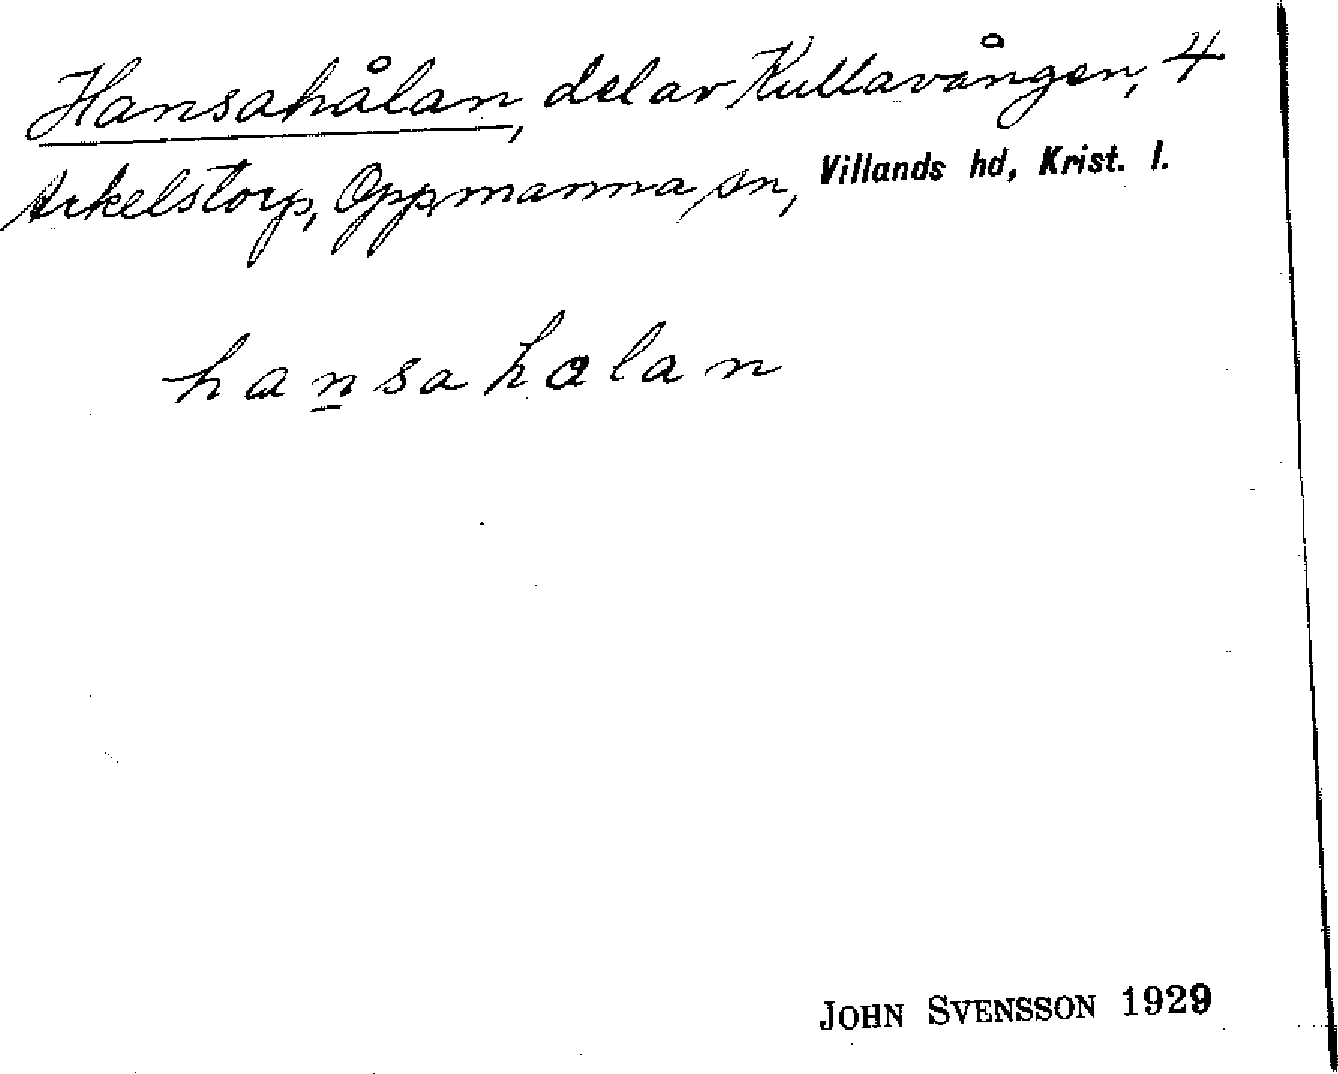 Hansahålan, del av Kullavången, 4
Arkelstorp, Oppmanna sn, Villands hd, Krist. l.
hansahalan
JOHN SVENSSON 1929